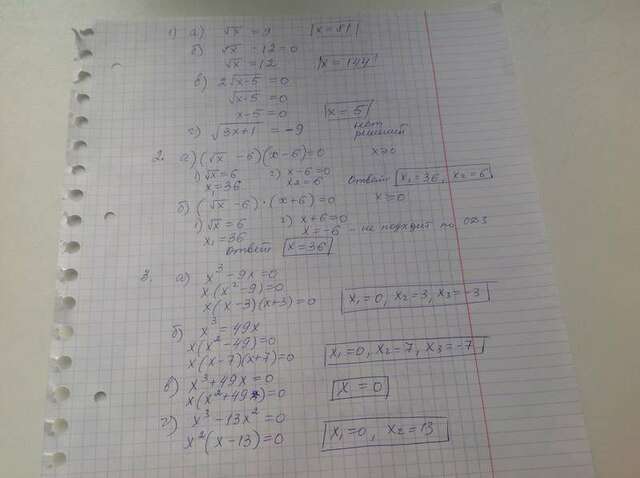 1) а) √x = 9 |x = 81|
б) √x - 12 = 0
√x = 12 |x = 144|
в) 2√x-5 = 0
√x-5 = 0
x-5 = 0 |x = 5|
г) √3x+1 = -9 нет решений
2. а) (√x - 6)(x - 6) = 0 x ≥ 0
1) √x = 6 2) x - 6 = 0
x₁ = 36 x₂ = 6 Ответ x₁ = 36, x₂ = 6
б) (√x - 6)·(x + 6) = 0 x ≥ 0
1) √x = 6 2) x + 6 = 0
x₁ = 36 x = -6 - не подходит по ОДЗ
Ответ x = 36
3. а) x³ - 9x = 0
x(x² - 9) = 0
x(x - 3)(x + 3) = 0 x₁ = 0, x₂ = 3, x₃ = -3
б) x³ = 49x
x(x² - 49) = 0
x(x - 7)(x + 7) = 0 x₁ = 0, x₂ = 7, x₃ = -7
в) x³ + 49x = 0
x(x² + 49) = 0 x = 0
г) x³ - 13x² = 0
x²(x - 13) = 0 x₁ = 0, x₂ = 13